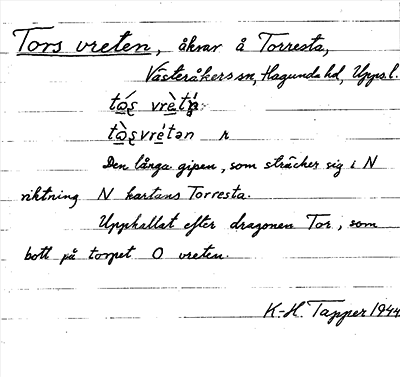 Tors vreten, åkrar å Torresta,
Västeråkers sn, Hagunda hd, Upps. l.
tɷ̀ʂvrétən r
Den långa gipen, som sträcker sig i N
riktning N kartans Torresta.
Upphallat efter dragonen Tor, som
bott på torpet O vreten.
K-H. Tapper 1944